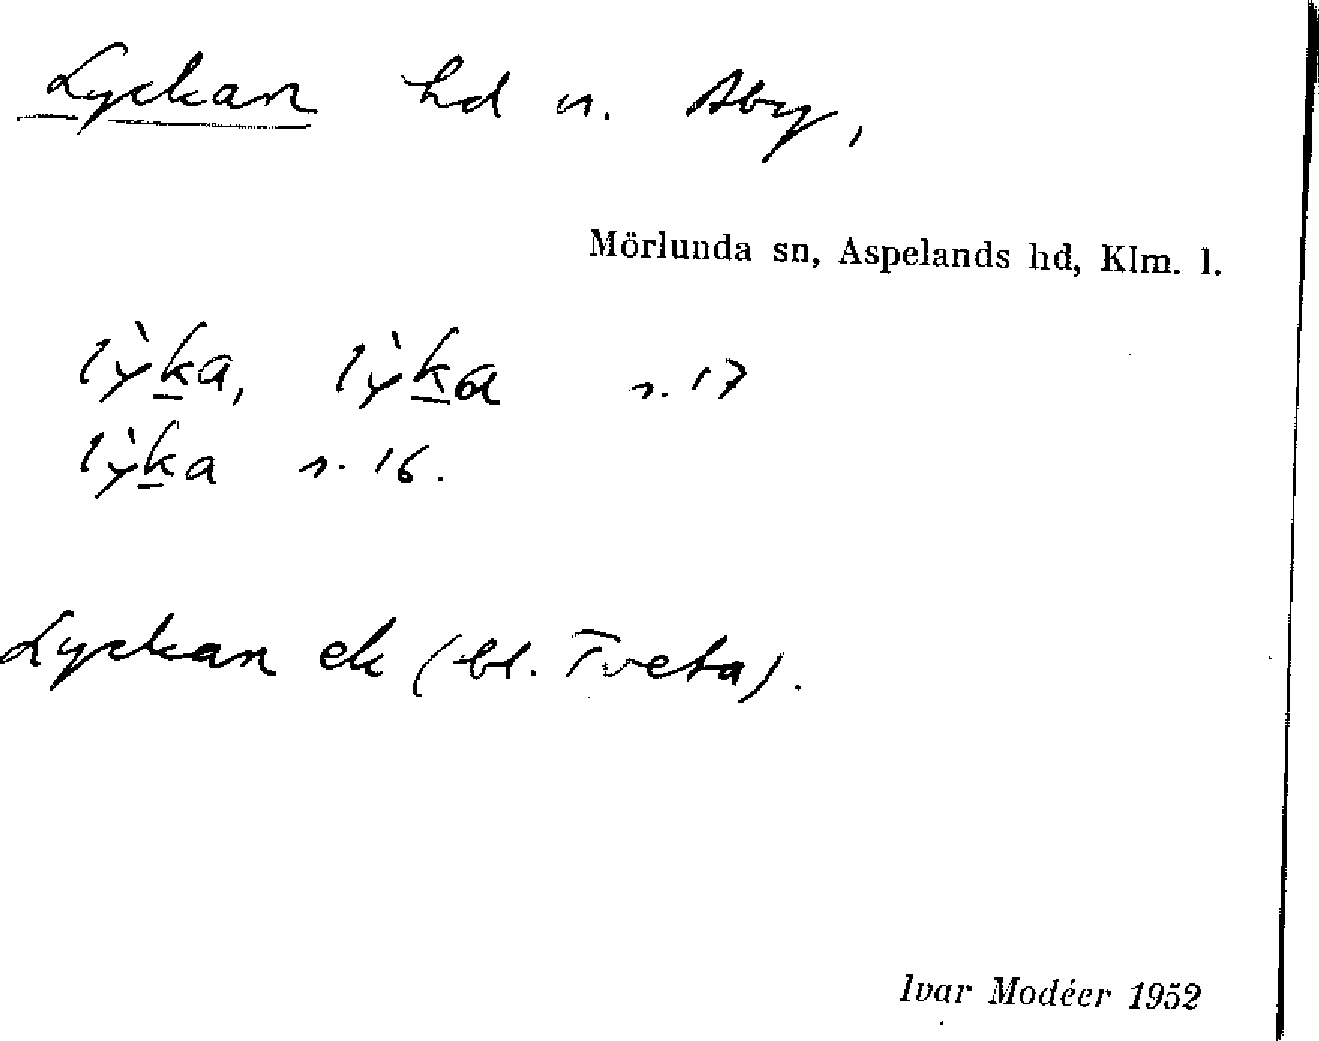 Lyckan hd u. Åby,
Mörlunda sn, Aspelands hd, Klm. l.
lỳka, lỳka s. 17
lỳka s. 16.
Lyckan ek (bl. Tveta).
Ivar Modéer 1952